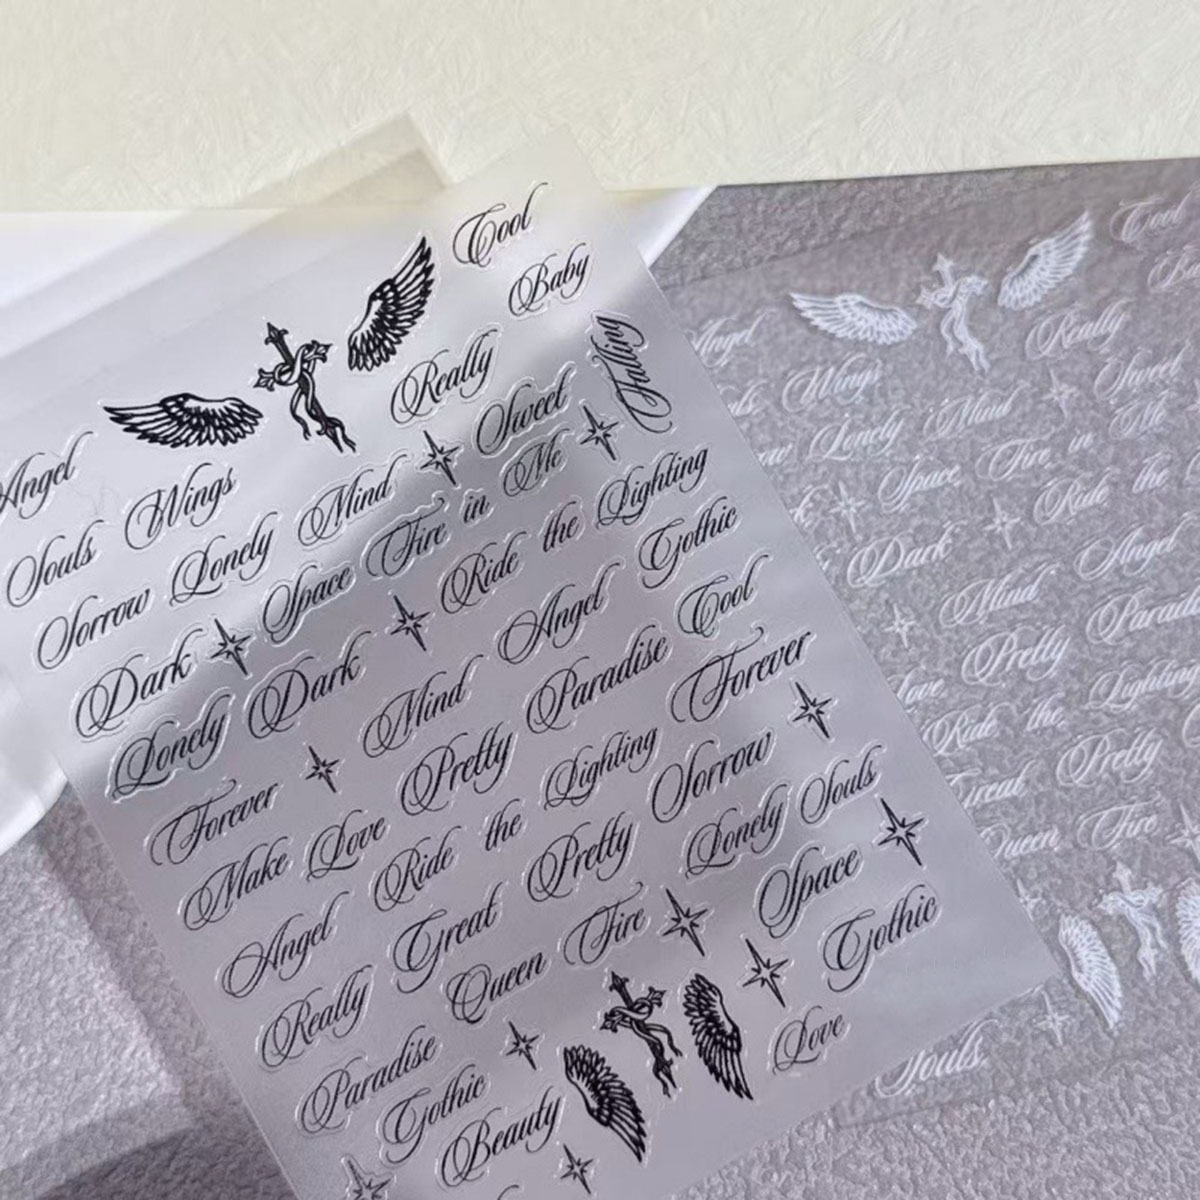 Cool
Baby
Falling
Really
Sweet
Angel
Wings
Mind
Me
Souls
Lonely
Fire in
Lighting
Sorrow
Space
Ride the
Gothic
Dark
Dark
Angel
Cool
Lonely
Mind
Paradise
Forever
Forever
Pretty
Lighting
Sorrow
Make Love
Ride the
Pretty
Lonely Souls
Angel
Great
Fire
Space
Really
Queen
Gothic
Paradise
Love
Gothic
Beauty
Cool
Really
Angel
Wings
Mind
Sweet
Lonely
Fire in
Me
Space
Ride the
Dark
Mind
Angel
Pretty
Ride the
Lighting
Great
Pretty
Queen Fire
Souls